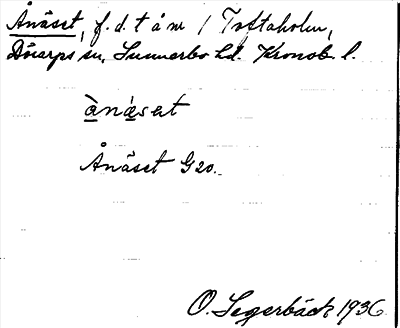 Ånäset, f.d. t å nr 1 Toftaholm,
Dörarps sn, Sunnerbo hd. Kronob. l.
ànæ̀set
Ånäset G 20.
O. Segerbäck 1936